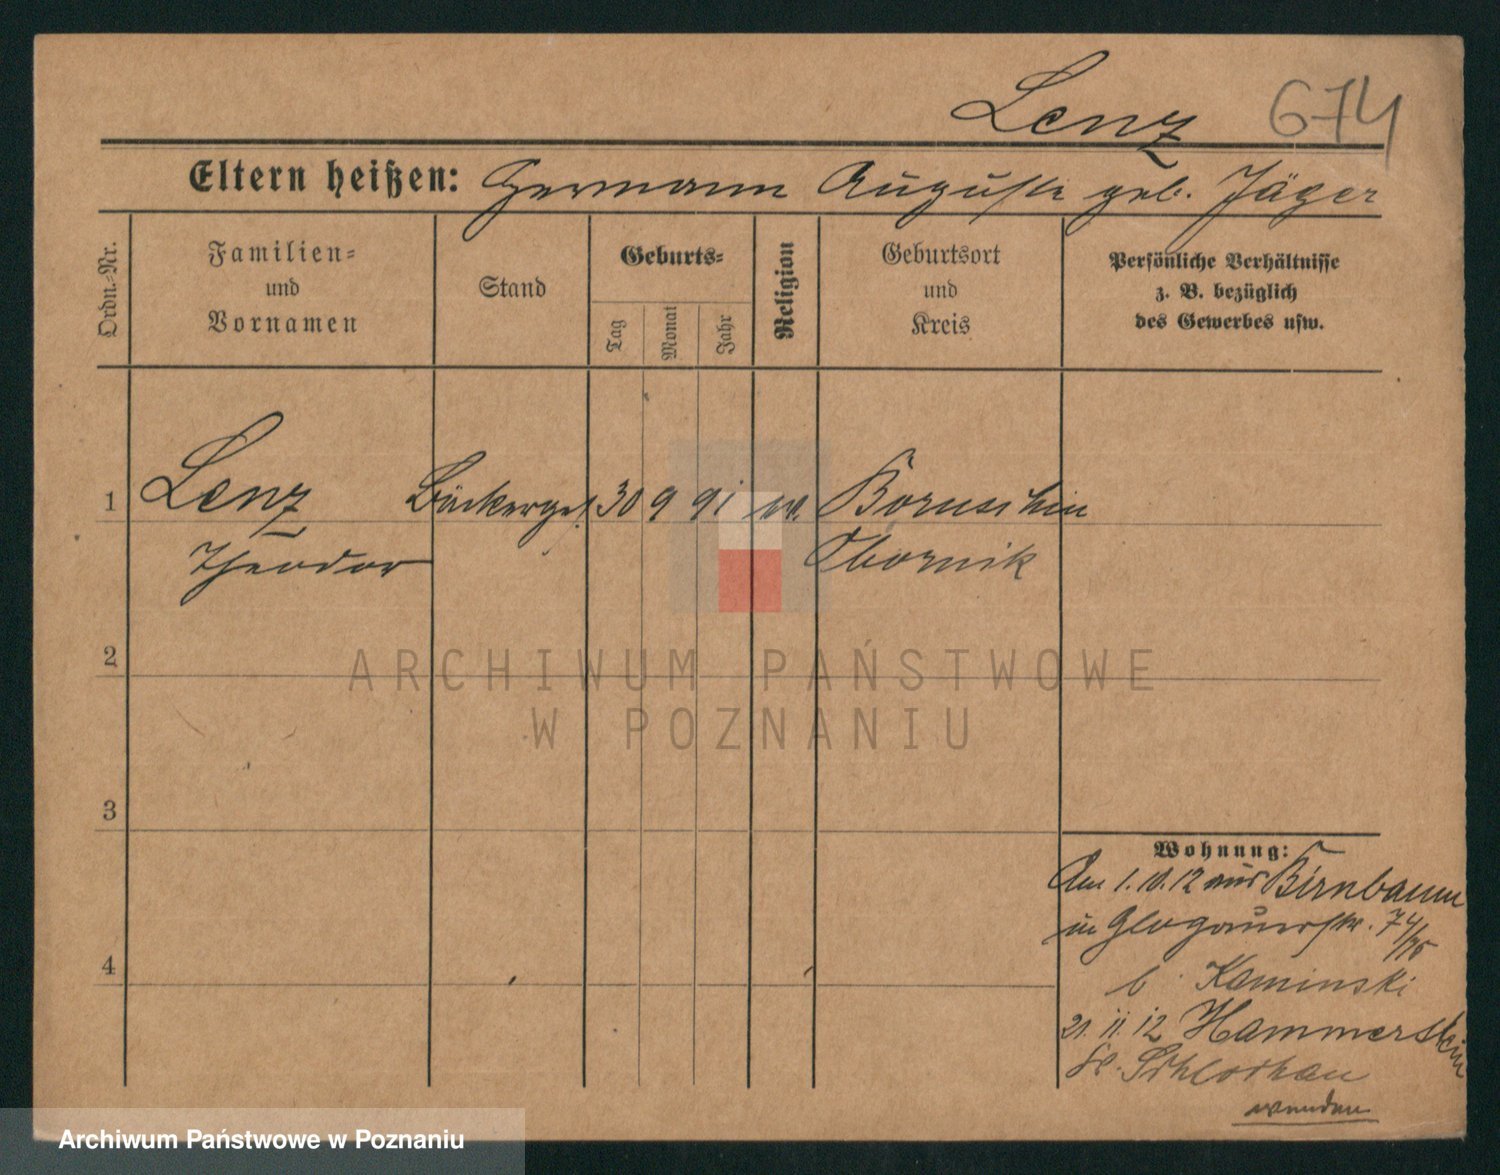 Lenz 674
Eltern heißen: Hermann Auguste geb. Jäger
Ordn.-Nr.
Familien-
und
Vornamen
Stand
Geburts-
Tag
Monat
Jahr
Religion
Geburtsort
und
Kreis
Persönliche Verhältnisse
z. B. bezüglich
des Gewerbes usw.
1 Lenz Bäckerges. 30 9 91 ev. Boruschin
Theodor Obornik
2
3
4
Wohnung:
Am 1.10.12 aus Birnbaum
in Glogauerstr. 74/75
b. Kaminski
21.11.12 Hammerstein
Kr. Schlochau
wenden
ARCHIWUM PAŃSTWOWE
W POZNANIU
Archiwum Państwowe w Poznaniu